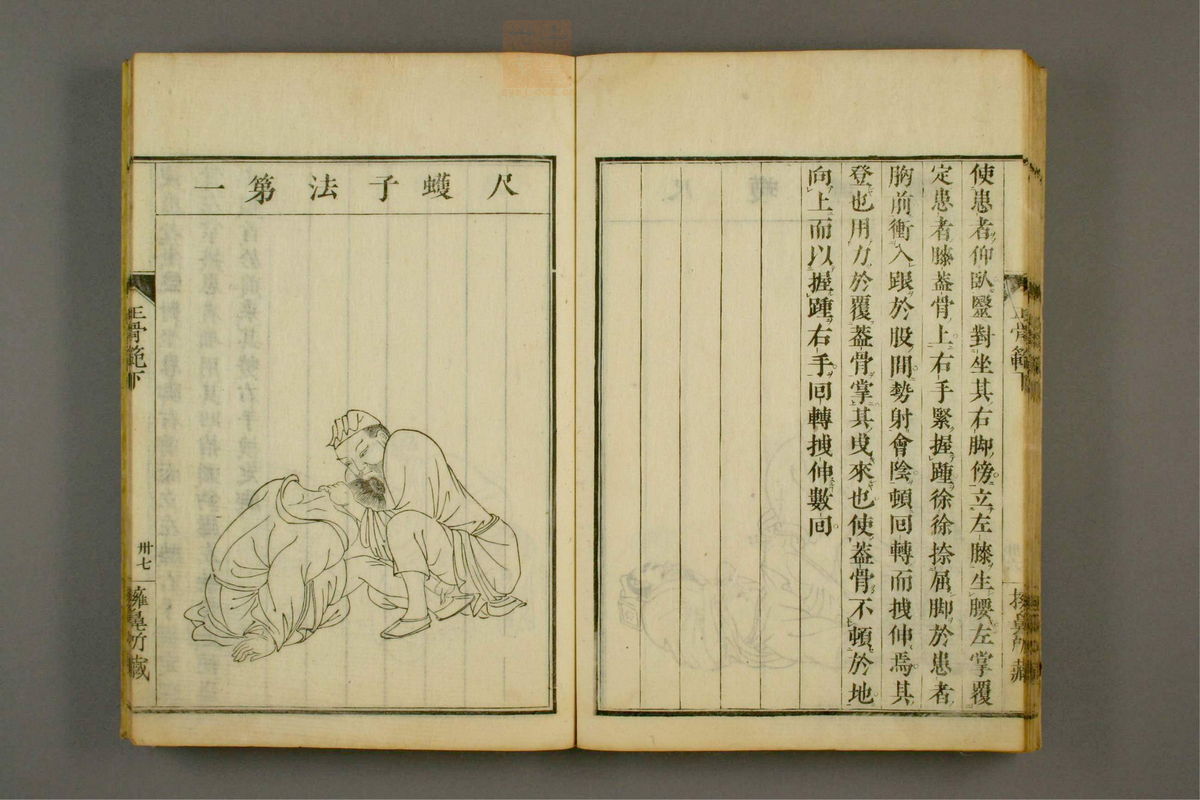 正骨範下
使患者仰臥毉對坐其右脚傍立左膝生腰左掌覆
定患者膝蓋骨上右手緊握踵徐徐捺屈脚於患者
胸前衝入跟於股間勢射會陰頓回轉而拽伸焉其
登也用力於覆蓋骨掌其曳來也使蓋骨不頓於地
向上而以握踵右手回轉拽伸數回
尺蠖子法第一
正骨範下
卅七